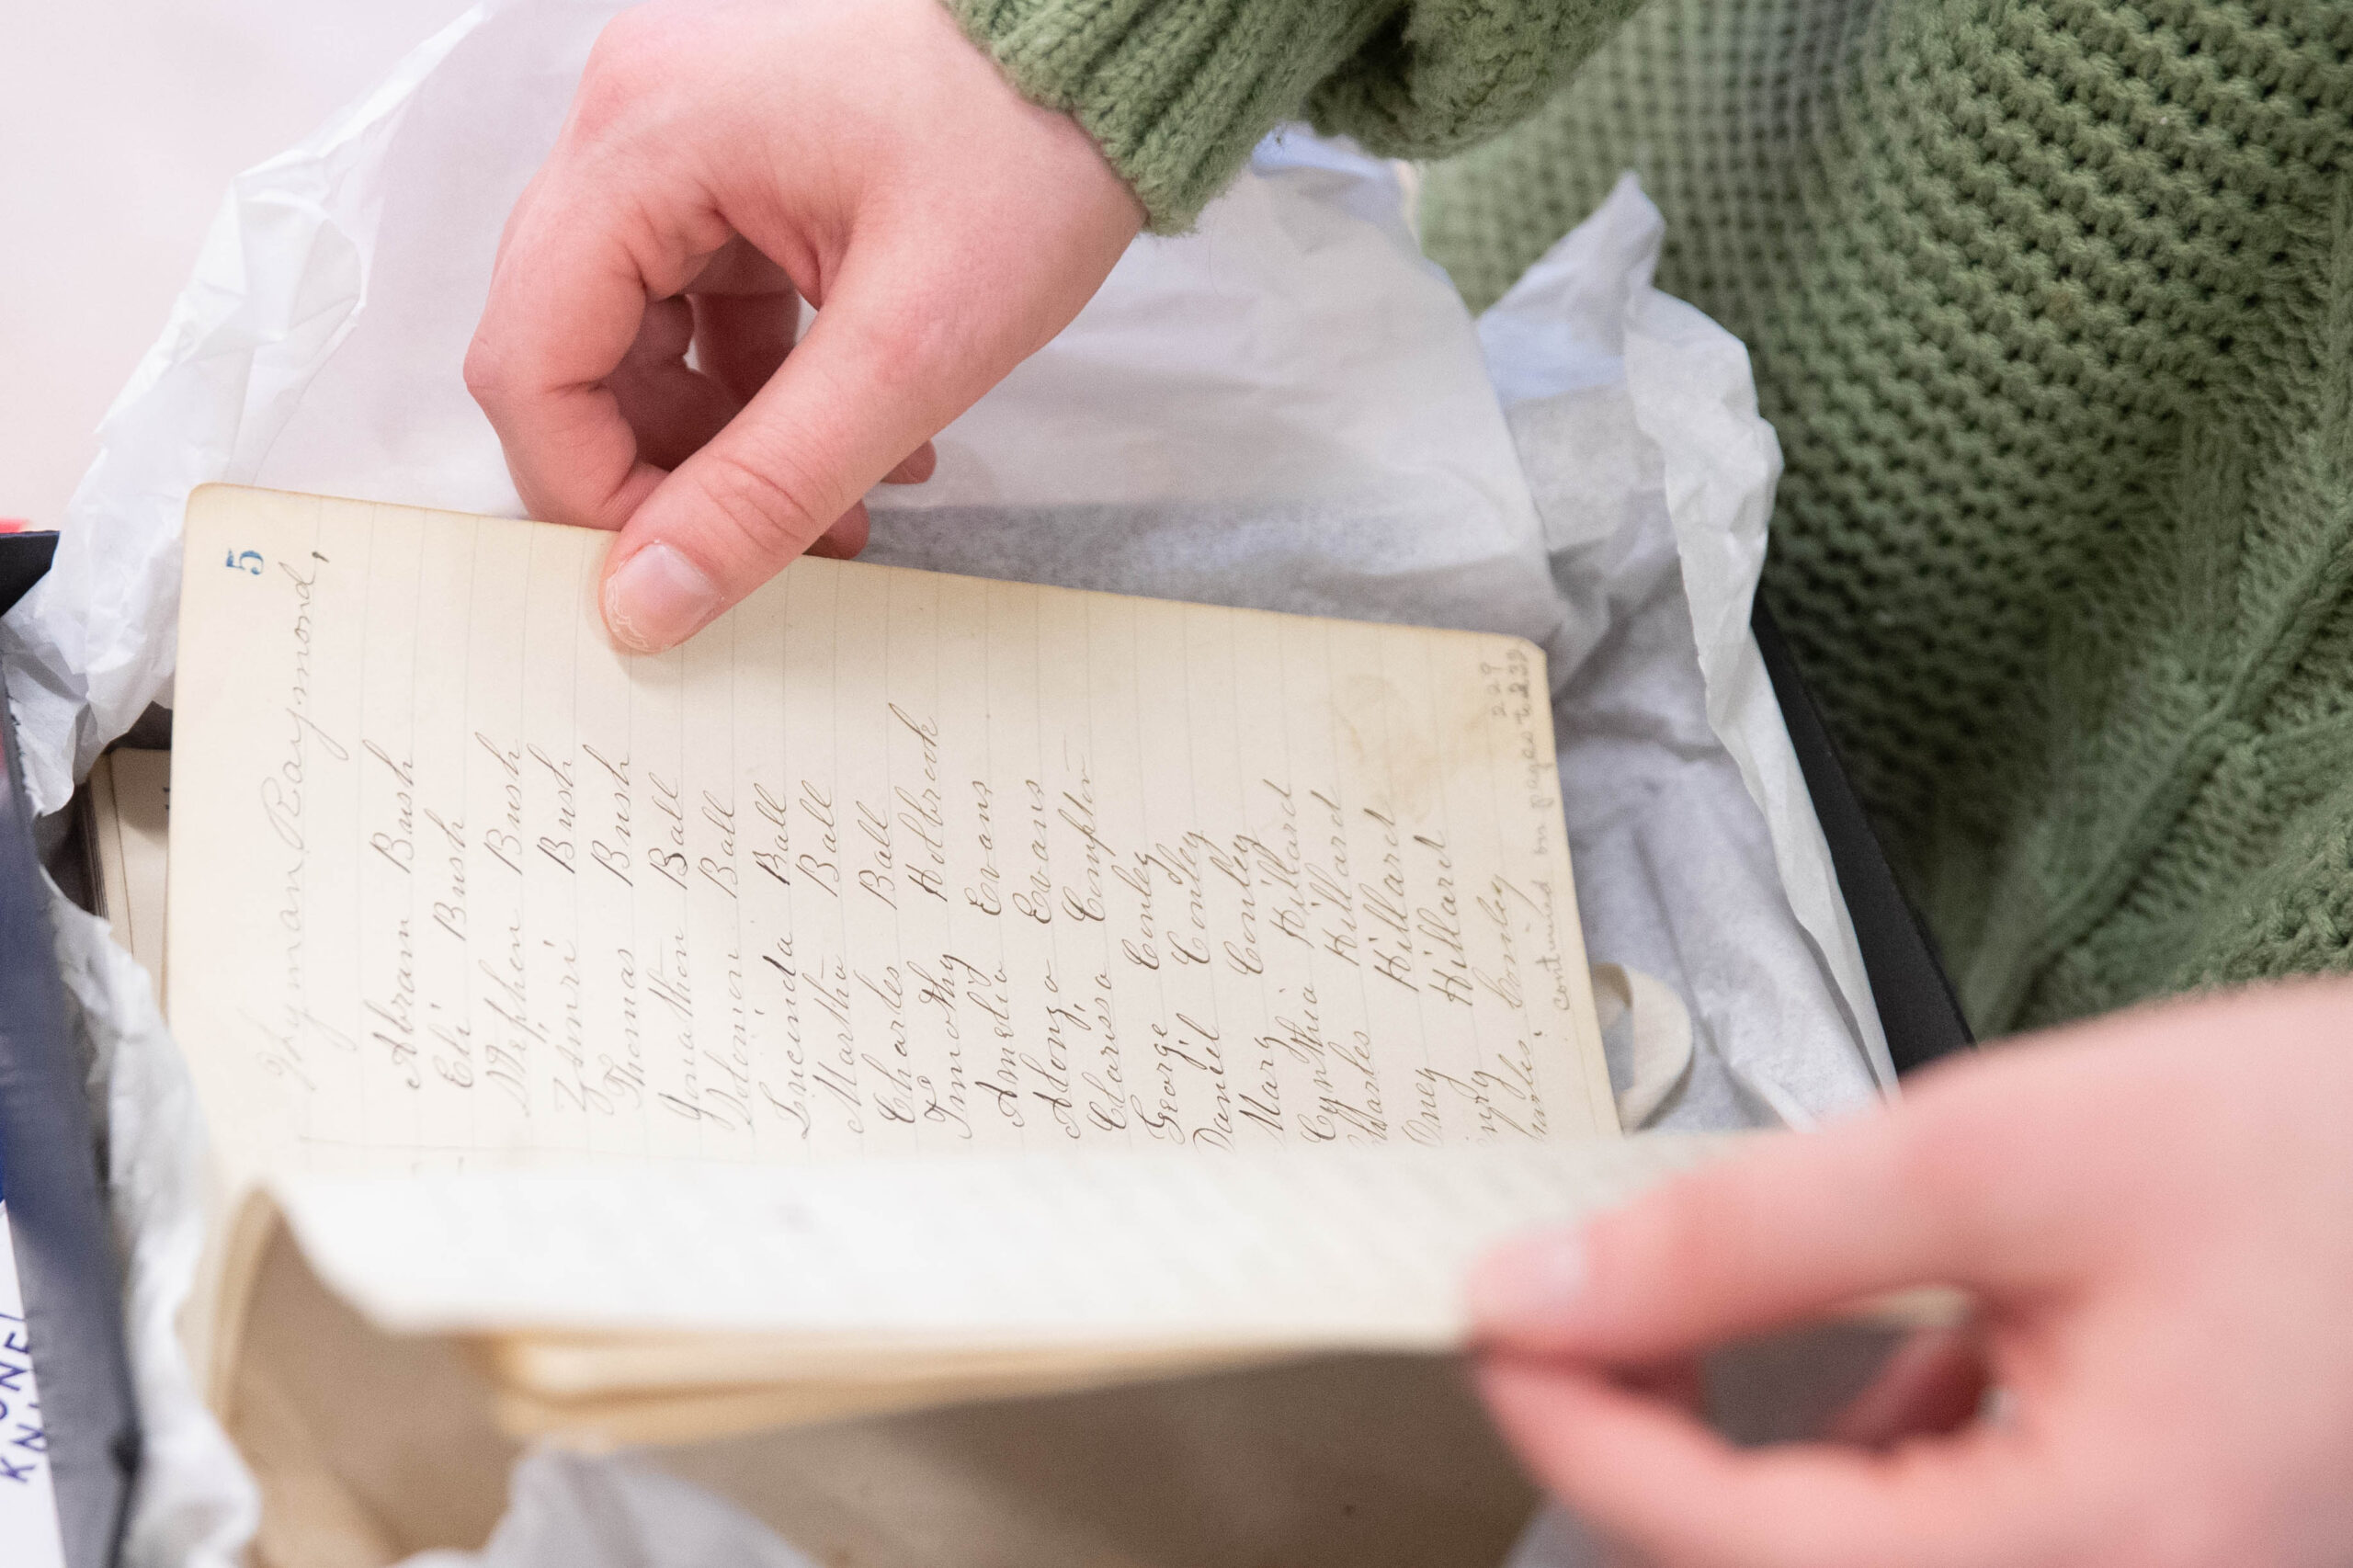 5
Raymond,
Abram Bush
Eli Bush
Stephen Bush
Zimri Bush
Thomas Bush
Jonathan Ball
Ball
Lucinda Ball
Martha Ball
Charles Ball
Timothy Holbrook
Amelia Evans
Alonzo Evans
Clarissa Compton
George Conley
Daniel Conley
Mary Conley
Cynthia Hillard
Charles Hillard
Hillard
Hillard
Conley
continued on pages 229 & 239
KN